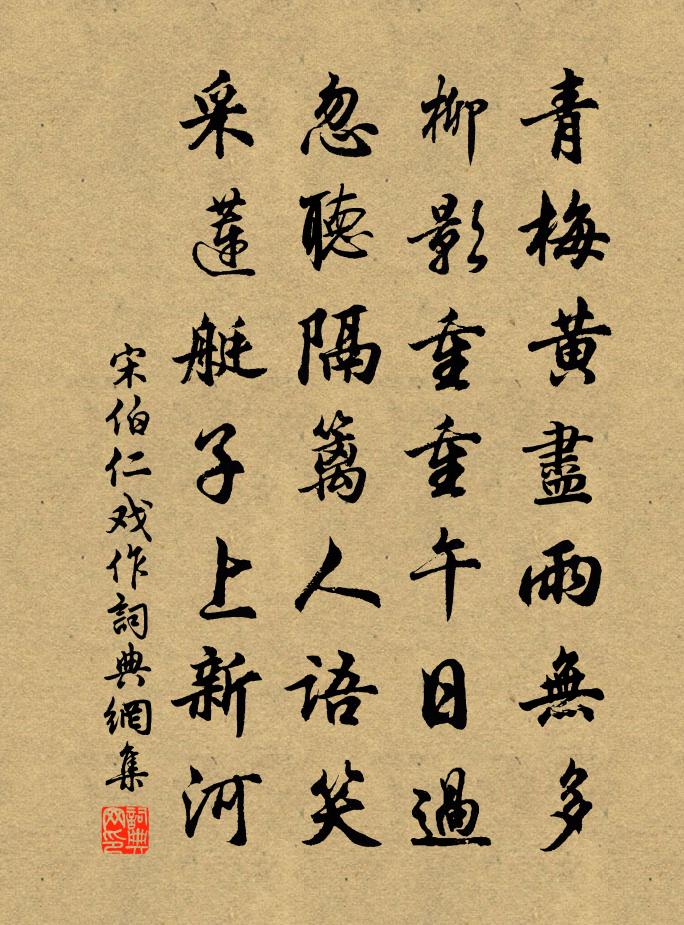 青梅黃盡雨無多
柳影重重午日過
忽聽隔籬人語笑
采蓮艇子上新河
宋伯仁戏作詞典網集
詞典網印